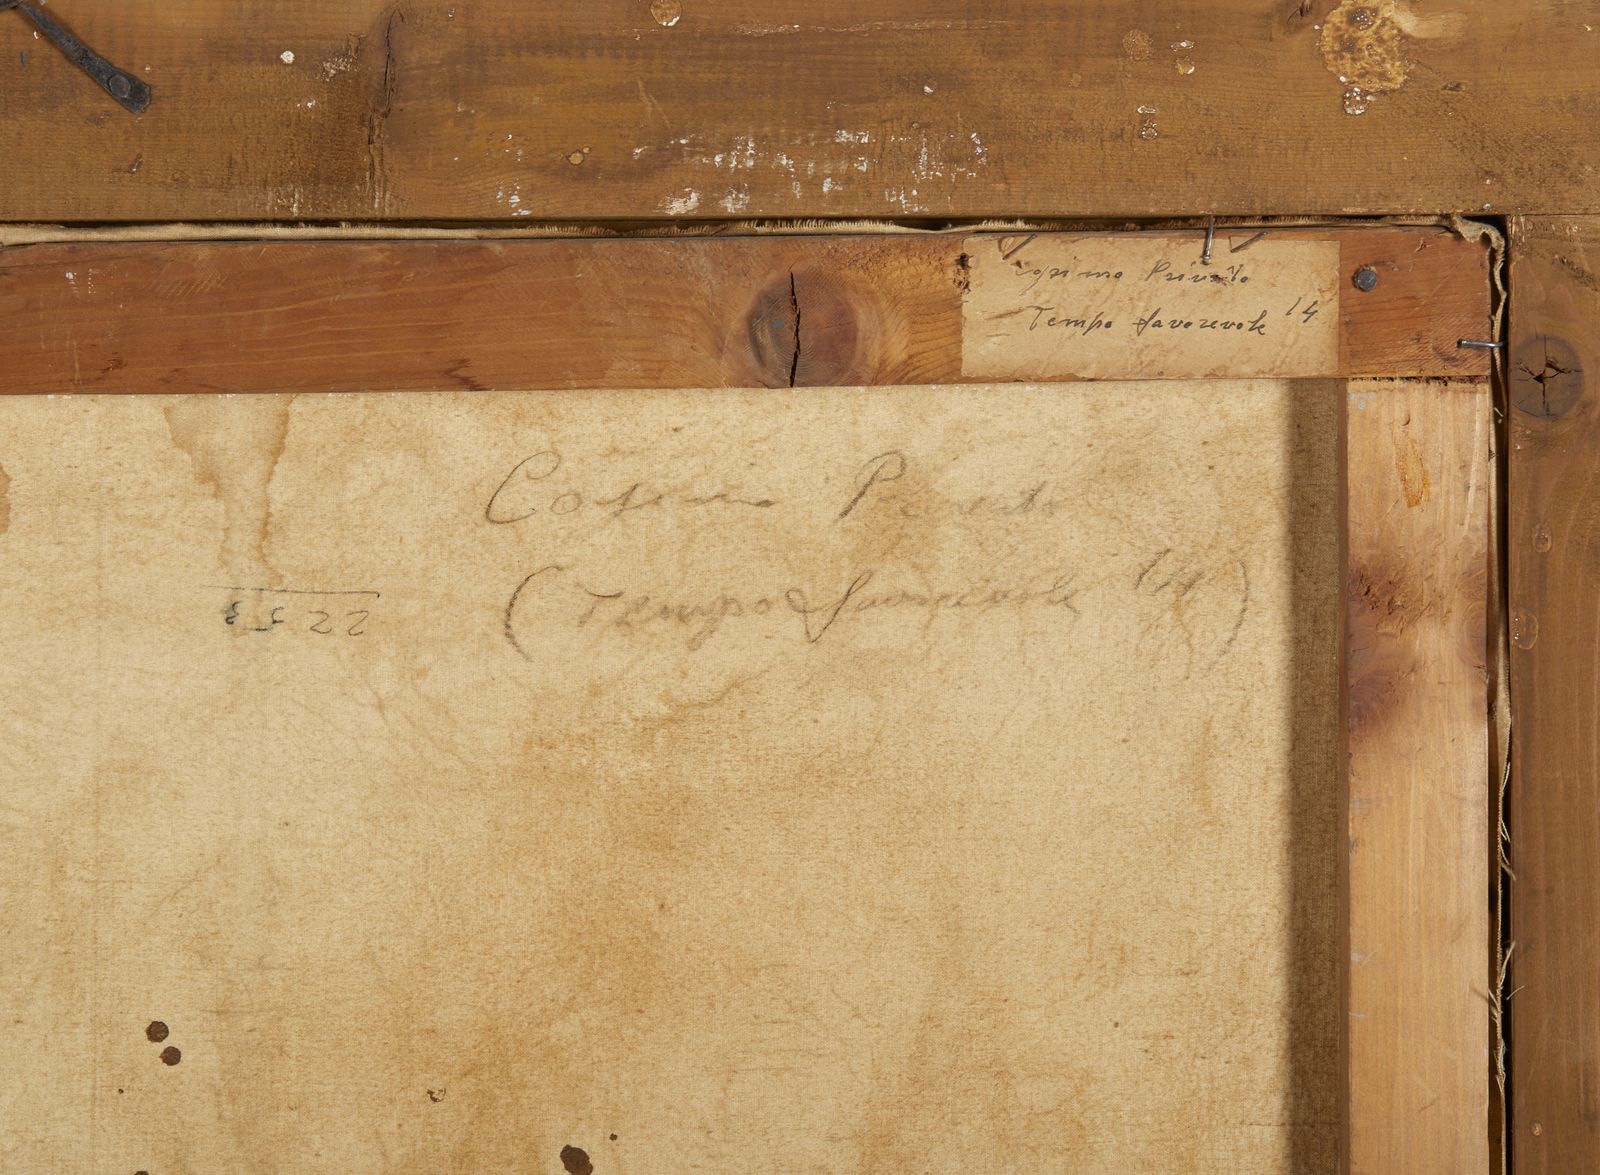 Cosimo Privato
Tempo favorevole 14
Cosimo Privato
(Tempo favorevole 14)